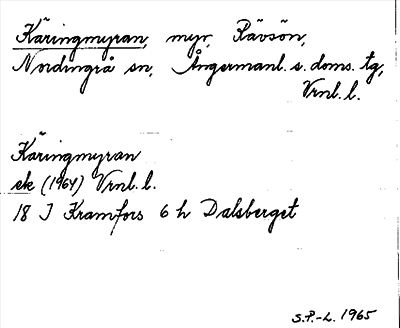 Käringmyran, myr, Rävsön,
Nordingrå sn, Ångermanl. s. doms. tg,
Vrnl. l.
Käringmyran
ek (1964) Vrnl. l.
18 I Kramfors 6 h Dalsberget
S.P.-L. 1965